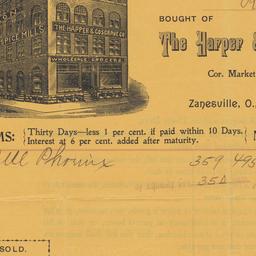 SPICE MILLS
THE HARPER & COSGRAVE CO
WHOLESALE GROCERS
BOUGHT OF
The Harper &
Cor. Market
Zanesville, O.,
MS: { Thirty Days—less 1 per cent. if paid within 10 Days.
Interest at 6 per cent. added after maturity. }
Phoenix 359 495
35
SOLD.